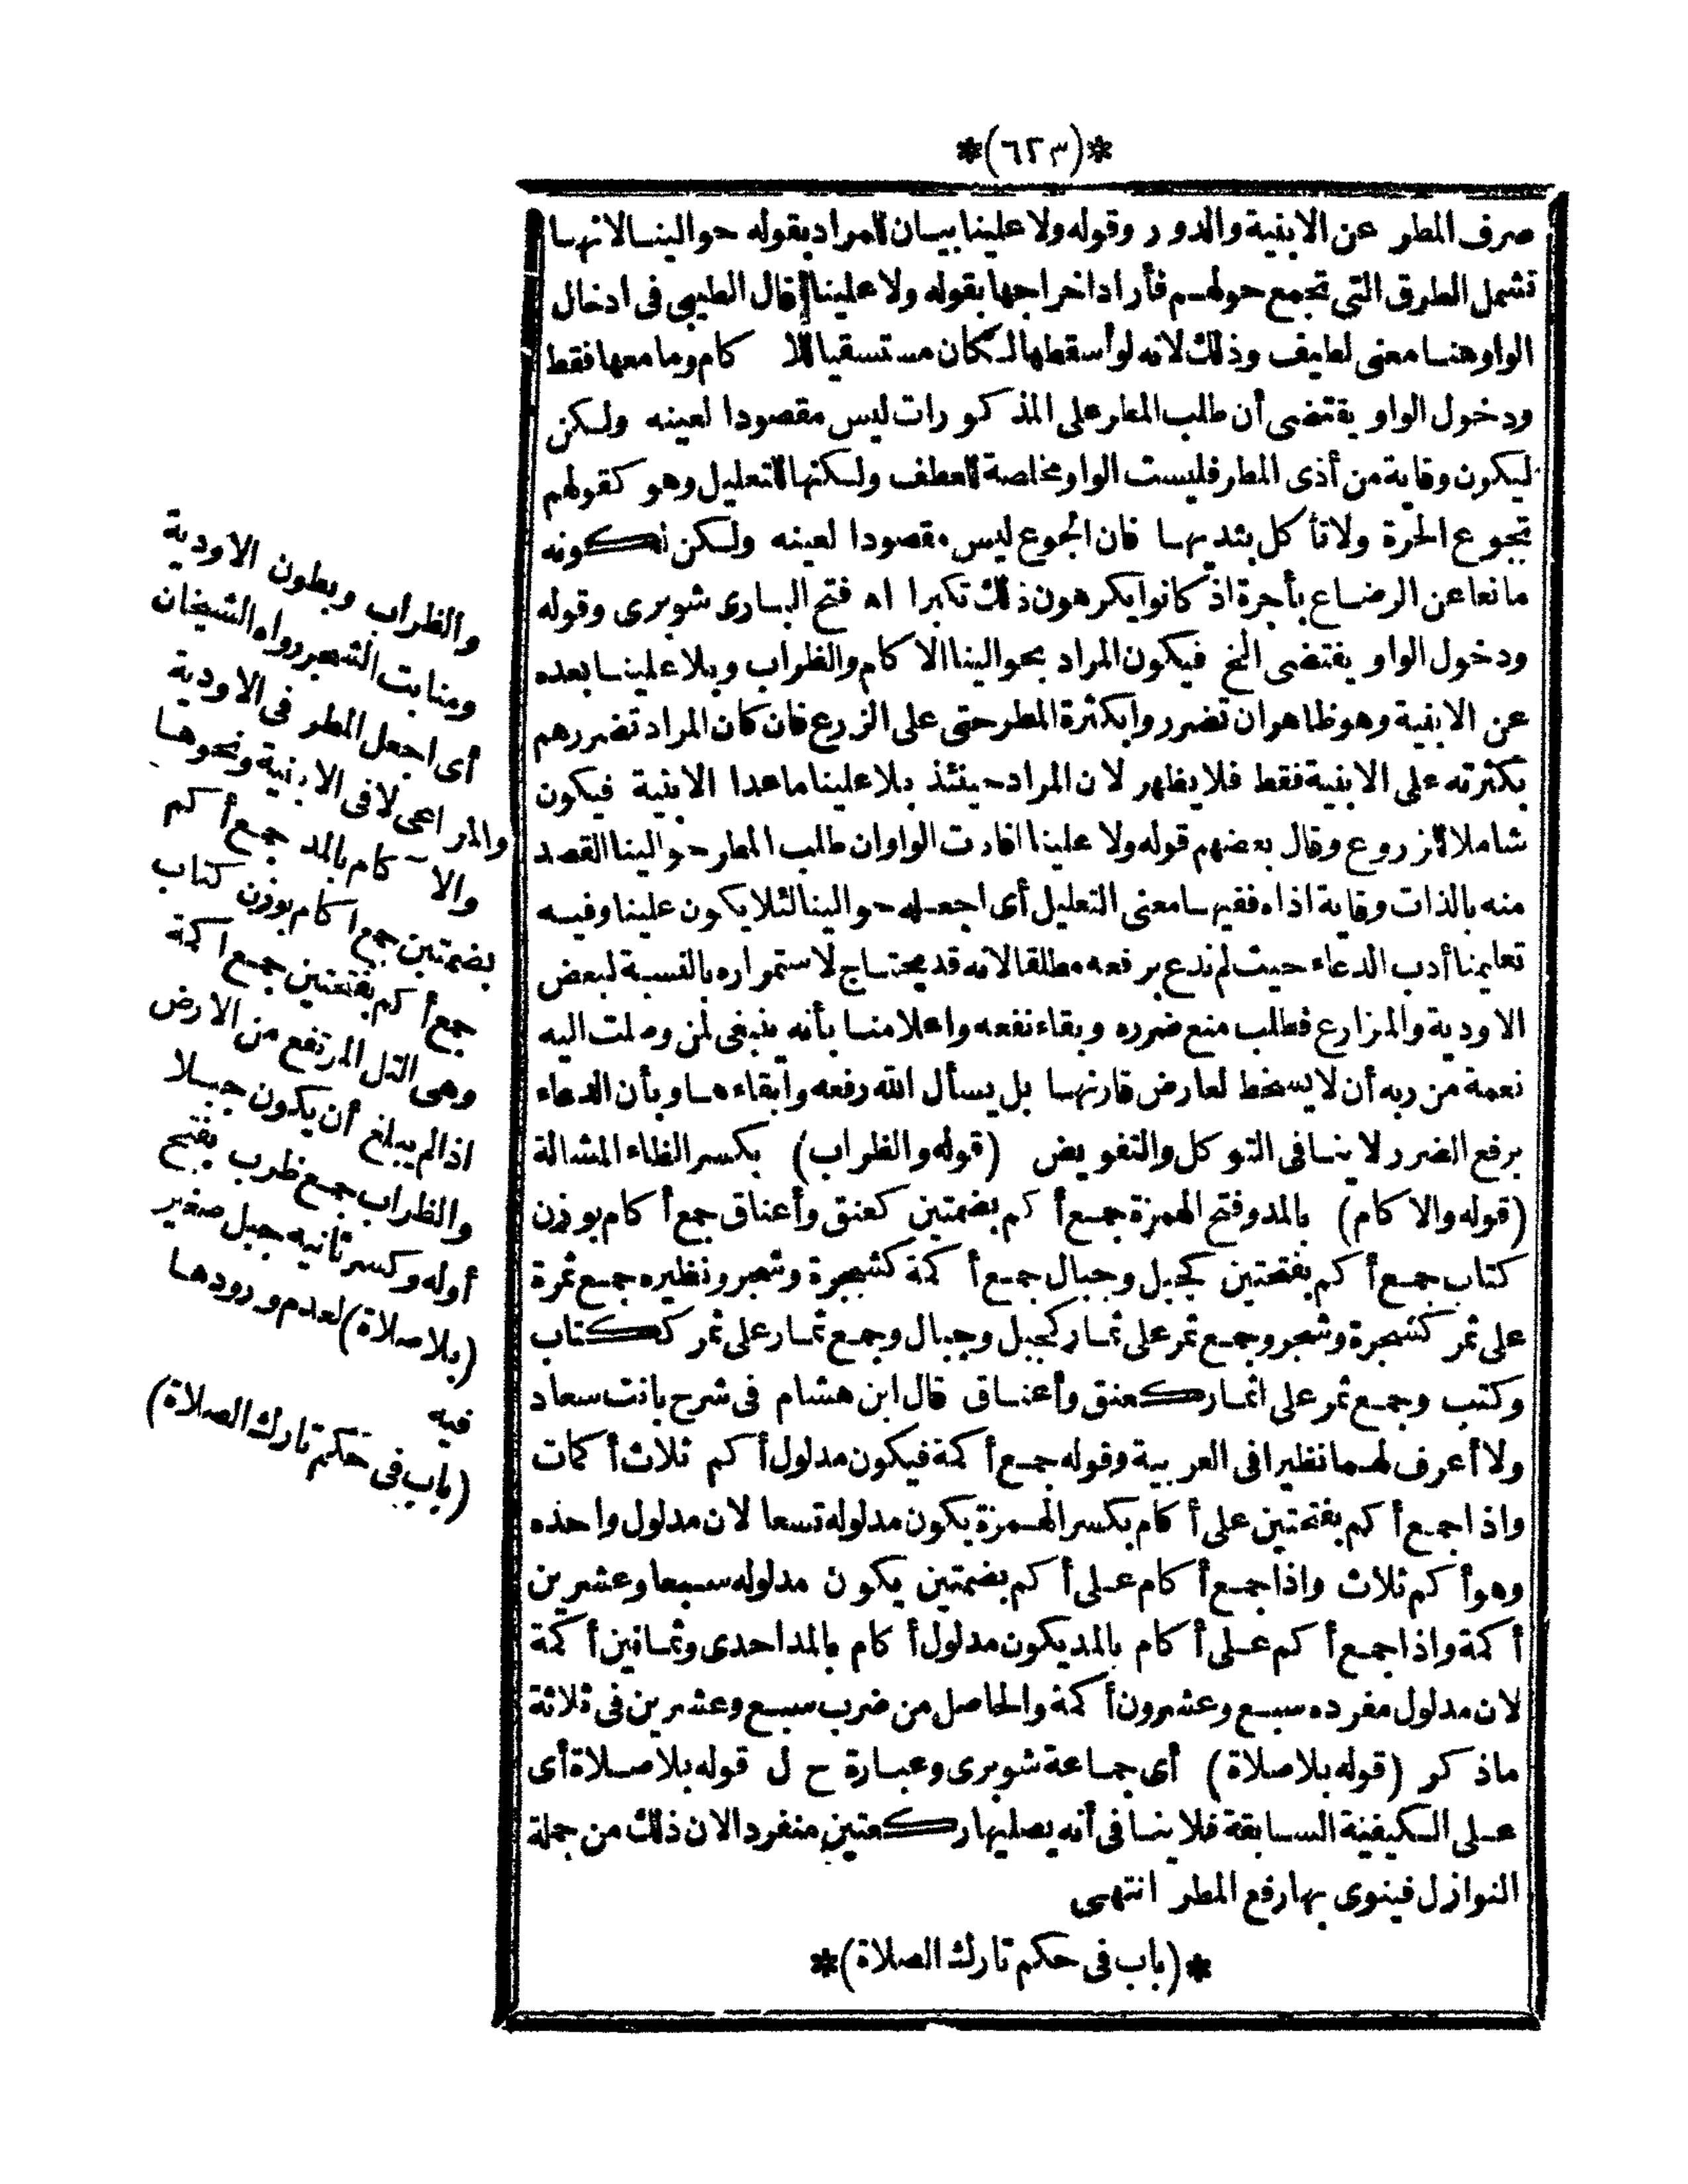 *(٦٢٣)*
صرف المطر عن الابنية والدور وقوله ولا علينا بيان للمراد بقوله حوالينا لانها
تشمل الطرق التى تجمع حولهم فأراد اخراجها بقوله ولا علينا قال الطيبى فى ادخال
الواو هنا معنى لطيف وذلك لانه لو أسقطها لكان مستسقيا للا كام وما معها فقط
ودخول الواو يقتضى أن طلب المطر على المذكورات ليس مقصودا لعينه ولكن
ليكون وقاية من أذى المطر فليست الواو مخلصة للعطف ولكنها للتعليل وهو كقولهم
تجوع الحرة ولا تأكل بثديها فان الجوع ليس مقصودا لعينه ولكن لكونه
مانعا عن الرضاع بأجرة اذ كانوا يكرهون ذلك تكبرا اه فتح البارى شوبرى وقوله
ودخول الواو يقتضى الخ فيكون المراد بحوالينا الا كام والظراب وبلا علينا بعده
عن الابنية وهو ظاهر ان تضرروا بكثرة المطر حتى على الزرع فان كان المراد تضررهم
بكثرته على الابنية فقط فلا يظهر لان المراد حينئذ بلا علينا ما عدا الابنية فيكون
شاملا للزروع وقال بعضهم قوله ولا علينا افادت الواو ان طلب المطر حوالينا القصد
منه بالذات وقاية اذاه ففيها معنى التعليل أى اجعله حوالينا لئلا يكون علينا وفيه
تعليمنا أدب الدعاء حيث لم ندع برفعه مطلقا لانه قد يحتاج لاستمراره بالنسبة لبعض
الاودية والمزارع فطلب منع ضرره وبقاء نفعه واعلامنا بأنه ينبغى لمن وصلت اليه
نعمة من ربه أن لا يسخط لعارض قارنها بل يسأل الله رفعه وابقاءها وبأن الدعاء
برفع الضرر لا ينافى التوكل والتفويض (قوله والظراب) بكسر الظاء المشالة
(قوله والا كام) بالمد وفتح الهمزة جمع أكم بضمتين كعنق وأعناق جمع أكام بوزن
كتاب جمع أكم بفتحتين كجبل وجبال جمع أكمة كشجرة وشجر ونظيره جمع ثمرة
على ثمر كشجرة وشجر وجمع ثمر على ثمار كجبل وجبال وجمع ثمار على ثمر ككتاب
وكتب وجمع ثمر على اثمار كعنق وأعناق قال ابن هشام فى شرح بانت سعاد
ولا أعرف لهما نظيرا فى العربية وقوله جمع أكمة فيكون مدلول أكم ثلاث أكمات
واذا جمع أكم بفتحتين على أكام بكسر الهمزة يكون مدلوله تسعا لان مدلول واحده
وهو أكم ثلاث واذا جمع أكام على أكم بضمتين يكون مدلوله سبعا وعشرين
أكمة واذا جمع أكم على أكام بالمد يكون مدلول أكام بالمد احدى وثمانين أكمة
لان مدلول مفرده سبع وعشرون أكمة والحاصل من ضرب سبع وعشرين فى ثلاثة
ماذكر (قوله بلا صلاة) أى جماعة شوبرى وعبارة ح ل قوله بلا صلاة أى
على الكيفية السابقة فلا ينافى أنه يصليها ركعتين منفردا لان ذلك من جملة
النوازل فينوى بها رفع المطر انتهى
*(باب فى حكم تارك الصلاة)*
والظراب وبطون الاودية
ومنابت الشجر رواه الشيخان
أى اجعل المطر فى الاودية
والمراعى لا فى الابنية ونحوها
والآ كام بالمد جمع أكم
بضمتين جمع اكام بوزن كتاب
جمع أكم بفتحتين جمع اكمة
وهى التل المرتفع من الارض
اذا لم يبلغ أن يكون جبلا
والظراب جمع ظرب بفتح
أوله وكسر ثانيه جبل صغير
(بلا صلاة) لعدم ورودها
فيه
(باب فى حكم تارك الصلاة)